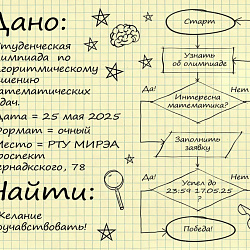 Дано:
Студенческая
олимпиада по
алгоритмическому
решению
математических
задач.
Дата = 25 мая 2025
Формат = очный
Место = РТУ МИРЭА
проспект
Вернадского, 78
Найти:
Желание
поучавствовать!
Старт
Узнать
об олимпиаде
Да!
Интересна
математика?
Нет!
Заполнить
заявку
Да!
Успел до
23:59 17.05.25
?
Нет!
Победа!